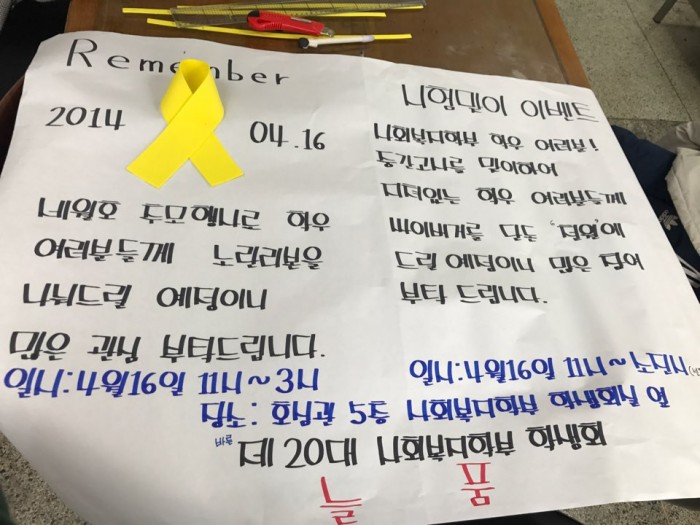 Remember
2014 04.16
세월호 추모행사로 학우
여러분들께 노란리본을
나눠드릴 예정이니
많은 관심 부탁드립니다.
일시:4월16일 11시~3시
시험맞이 이벤트
사회복지학부 학우 여러분!
중간고사를 맞이하여
지쳐있는 학우 여러분들께
싸이버거를 단돈 '천원'에
드릴 예정이니 많은 참여
부탁 드립니다.
일시:4월16일 11시~소진시
장소: 호심관 5층 사회복지학부 학생회실 앞
제 20대 사회복지학부 학생회
늘 품